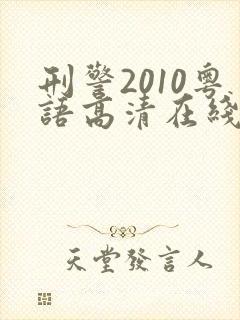 刑警2010粵
語高清在綫
天堂發言人